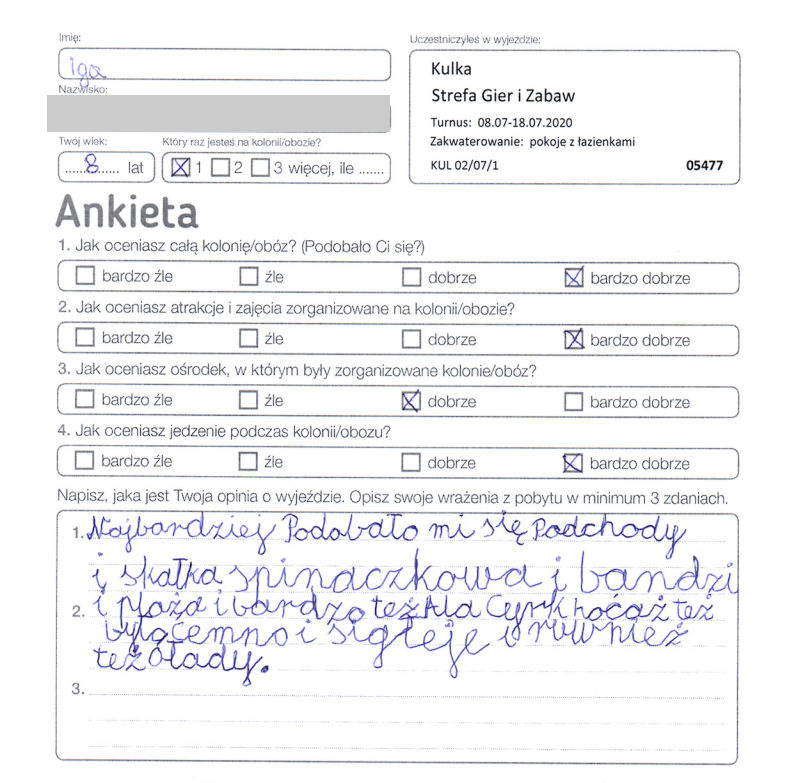 Imię:
Iga
Nazwisko:
Twój wiek:
8 lat
Który raz jesteś na kolonii/obozie?
1 2 3 więcej, ile .......
Uczestniczyłeś w wyjeździe:
Kulka
Strefa Gier i Zabaw
Turnus: 08.07-18.07.2020
Zakwaterowanie: pokoje z łazienkami
KUL 02/07/1 05477
Ankieta
1. Jak oceniasz całą kolonię/obóz? (Podobało Ci się?)
bardzo źle źle dobrze bardzo dobrze
2. Jak oceniasz atrakcje i zajęcia zorganizowane na kolonii/obozie?
bardzo źle źle dobrze bardzo dobrze
3. Jak oceniasz ośrodek, w którym były zorganizowane kolonie/obóz?
bardzo źle źle dobrze bardzo dobrze
4. Jak oceniasz jedzenie podczas kolonii/obozu?
bardzo źle źle dobrze bardzo dobrze
Napisz, jaka jest Twoja opinia o wyjeździe. Opisz swoje wrażenia z pobytu w minimum 3 zdaniach.
1. Najbardziej Podobało mi się Podchody
i skałka spinaczkowa i bandzi
2. i plaża i bardzo też Ala Cyrk hoćaż też
było ćemno i i również
też obady.
3.